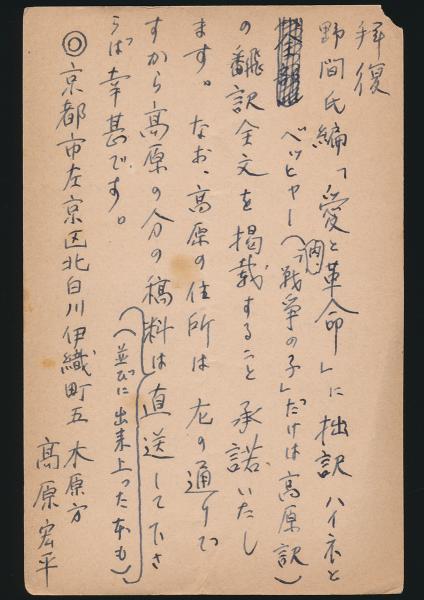 拝復
野間氏編「愛と革命」に拙訳ハイネと
ベッヒャー(内、「戦争の子」だけは高原訳)
の飜訳全文を掲載すること承諾いたし
ます。なお、高原の住所は左の通りで
すから高原の分の稿料は直送して下さ
(並びに出来上った本も)
らば幸甚です。
◎京都市左京区北白川伊織町五 木原方
高原宏平